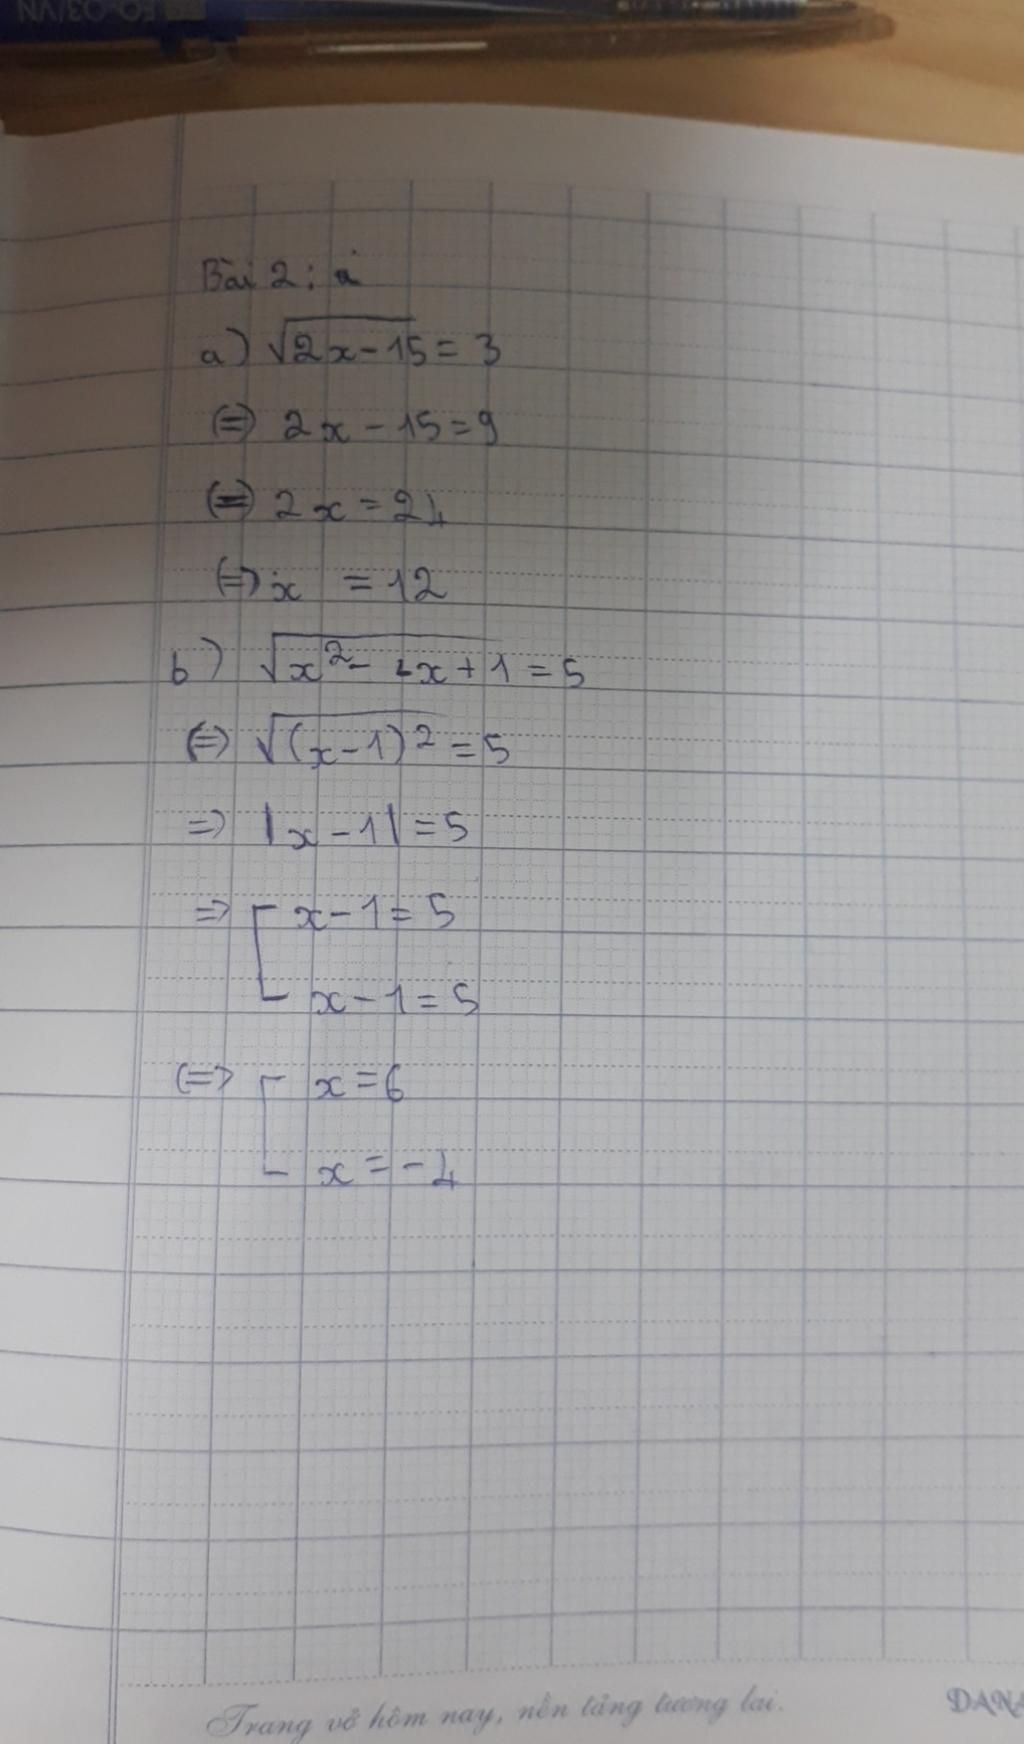 Bài 2: a
a) √2x-15 = 3
(=) 2x - 15 = 9
(=) 2x = 24
(=) x = 12
b) √x²- 2x + 1 = 5
(=) √(x-1)² = 5
=) |x - 1| = 5
=) [ x - 1 = 5
x - 1 = 5
(=) [ x = 6
x = -4
Trang vở hôm nay, nền tảng tương lai.